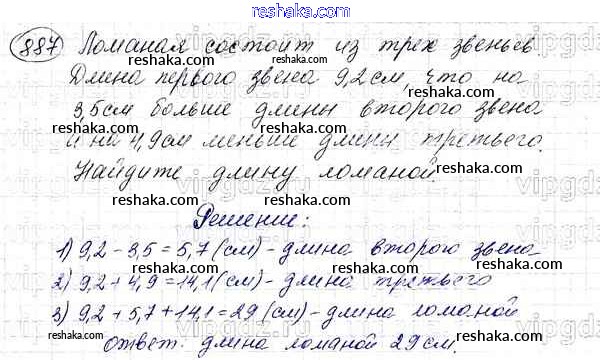 reshaka.com
887 Ломаная состоит из трех звеньев
reshaka.com reshaka.com reshaka.com
Длина первого звена 9,2 см, что на
reshaka.com
3,5см больше длины второго звена
reshaka.com reshaka.com
и на 4,9см меньше длины третьего.
reshaka.com
Найдите длину ломаной
reshaka.com reshaka.com
Решение:
reshaka.com
1) 9,2 - 3,5 = 5,7 (см) - длина второго звена
reshaka.com reshaka.com
2) 9,2 + 4,9 = 14,1 (см) - длина третьего
reshaka.com
3) 9,2 + 5,7 + 14,1 = 29 (см) - длина ломаной
reshaka.com reshaka.com
ответ: длина ломаной 29 см
reshaka.com